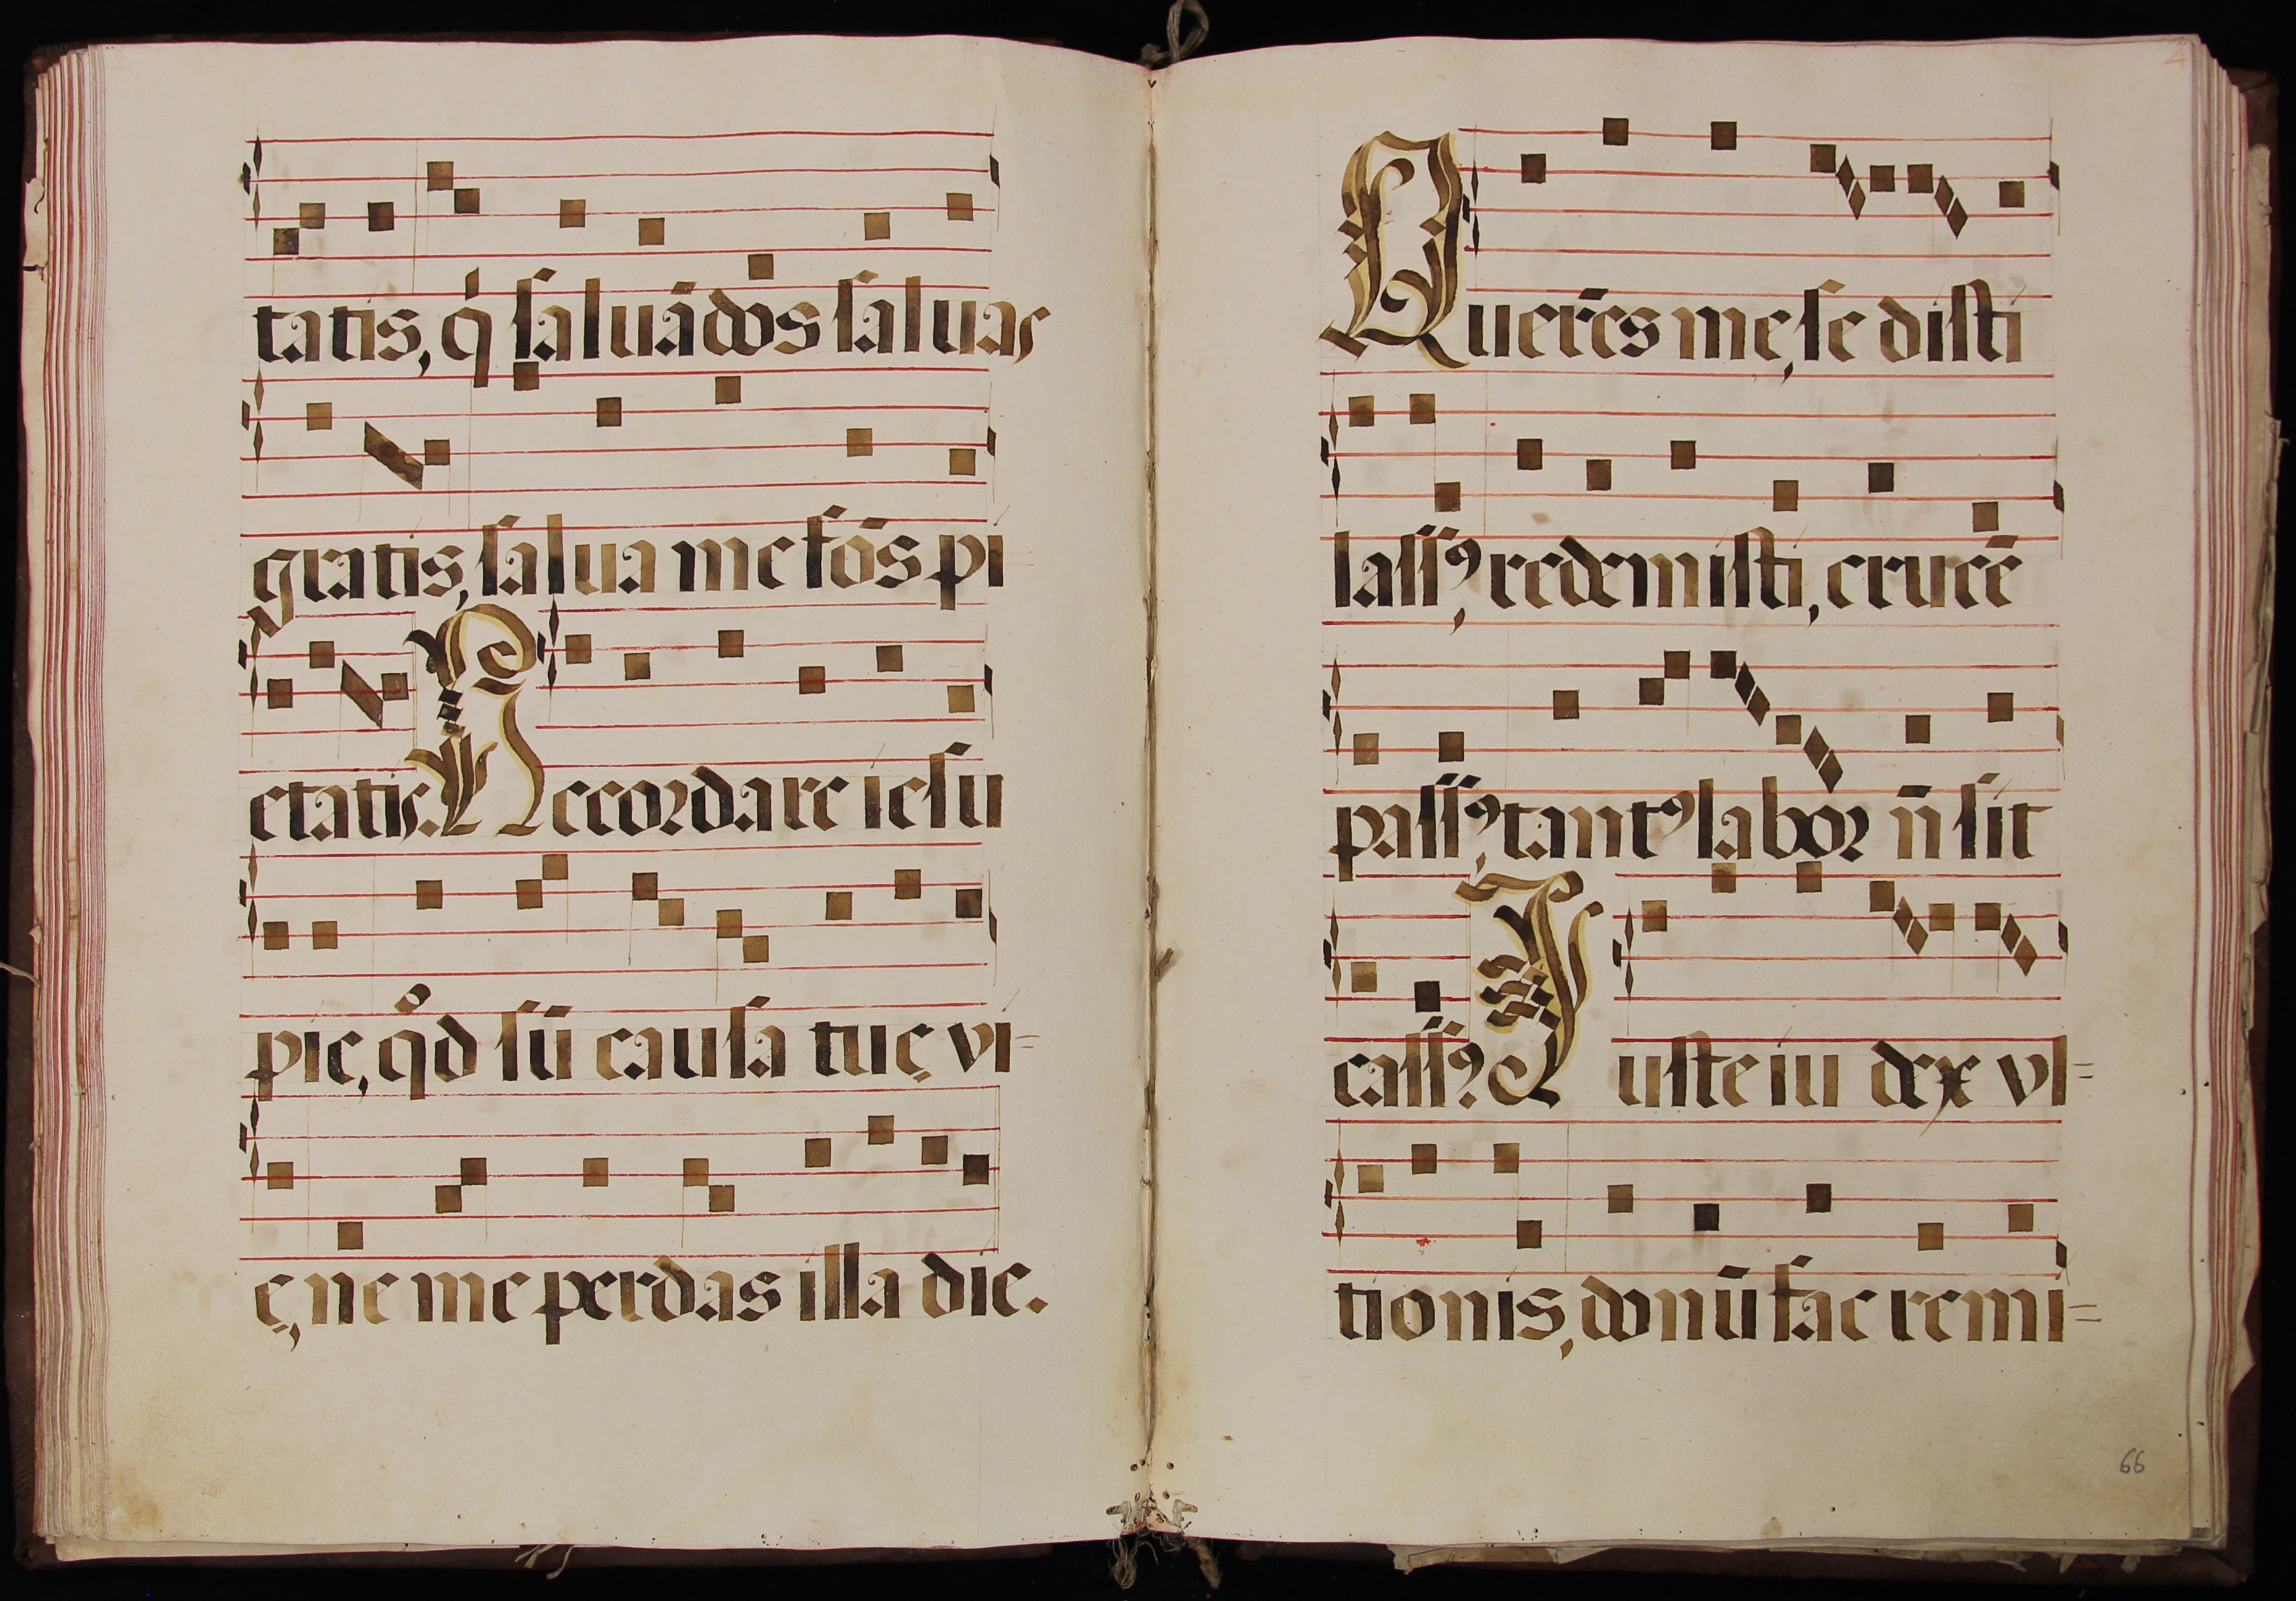 tatis, q̇ saluādos saluas
gratis, salua me fōs pi
etatis. Recordare iesu
pie, qͦd sū causa tuę vi=
ę, ne me perdas illa die.
Querēs me, se disti
lassꝰ, redemisti, crucē
passꝰ, tantꝰ labor n̄ sit
cassꝰ. Iuste iu dex vl=
tionis, donū fac remi=
66